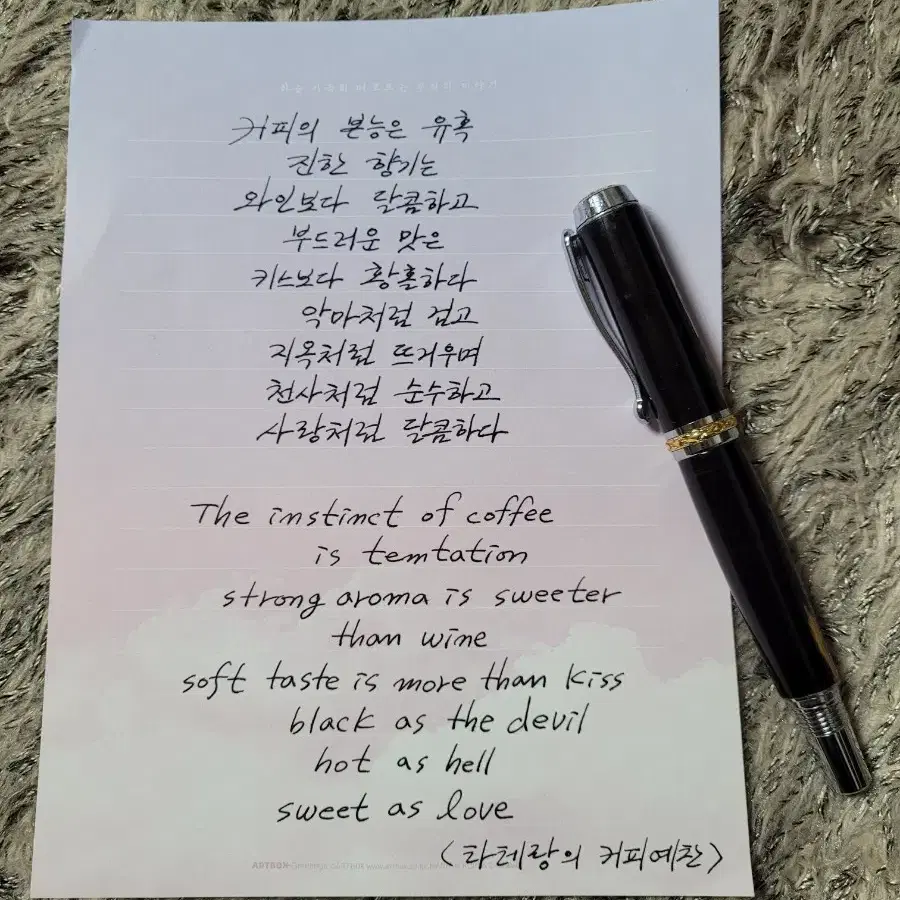 커피의 본능은 유혹
진한 향기는
와인보다 달콤하고
부드러운 맛은
키스보다 황홀하다
악마처럼 검고
지옥처럼 뜨거우며
천사처럼 순수하고
사랑처럼 달콤하다
The instinct of coffee
is temtation
strong aroma is sweeter
than wine
soft taste is more than kiss
black as the devil
hot as hell
sweet as love
<타테랑의 커피예찬>
ARTBOX